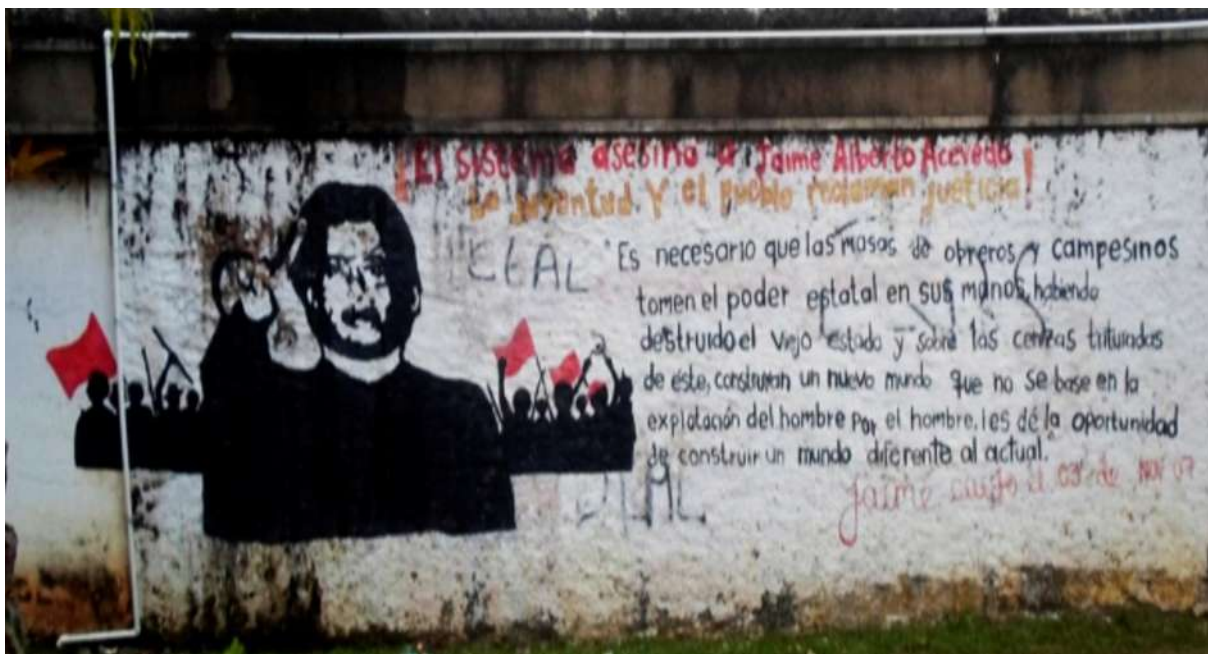 ¡El sistema asesino a Jaime Alberto Acevedo
La juventud y el pueblo reclaman justicia!
CEAL
"Es necesario que las masas de obreros y campesinos
tomen el poder estatal en sus manos, habiendo
destruido el viejo estado y sobre las cenizas trituradas
de éste, construyan un nuevo mundo que no se base en la
explotación del hombre por el hombre, les dé la oportunidad
de construir un mundo diferente al actual."
Jaime 03 de